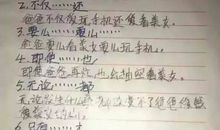 2.不仅……还
爸爸不仅爱玩手机还爱看美女。
3.要么……要么……
爸爸要么看美女要么玩手机。
4.即使……也
即使爸爸再忙，也会抽空看美女。
5.无论……都
无论发生什么
看美女
6.只有……才